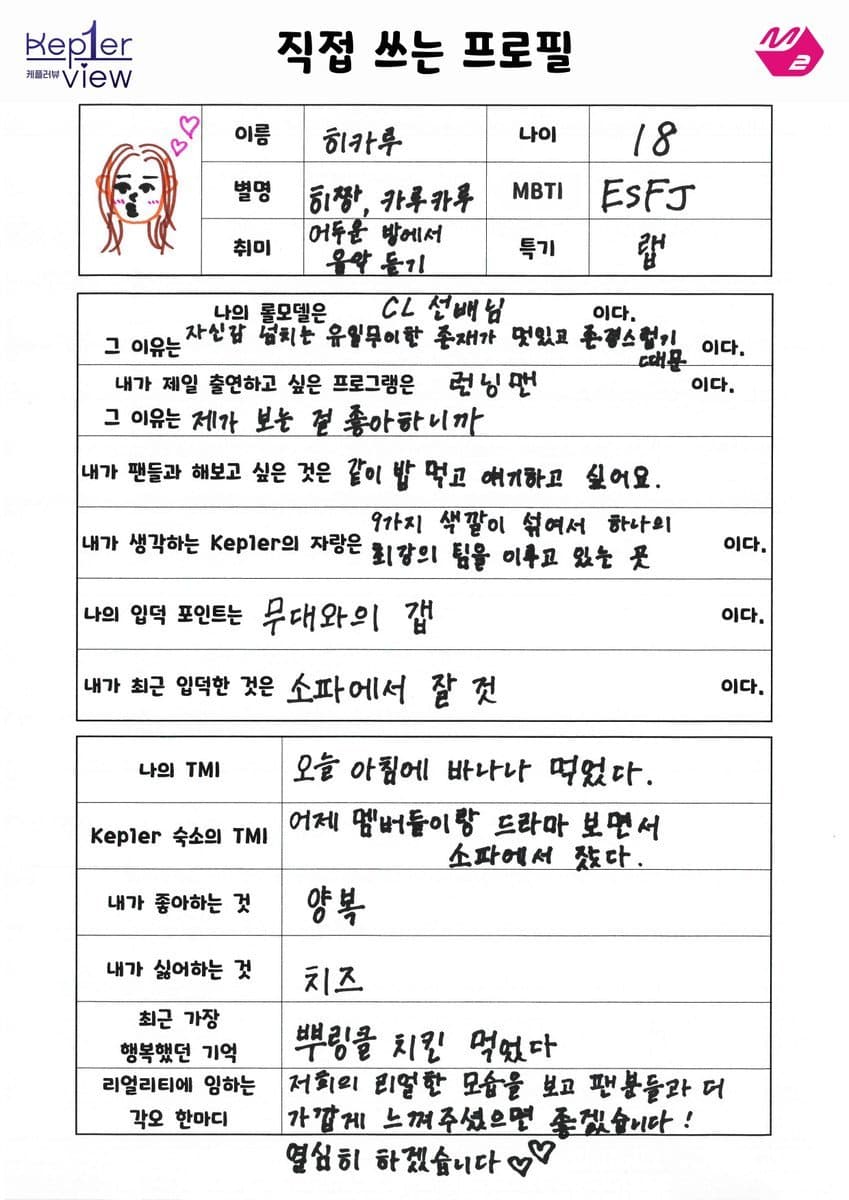 Kep1er
케플러뷰 view
직접 쓰는 프로필
M2
이름 히카루 나이 18
별명 히짱, 카루카루 MBTI ESFJ
취미 어두운 방에서
음악 듣기 특기 랩
나의 롤모델은 CL 선배님 이다.
그 이유는 자신감 넘치는 유일무이한 존재가 멋있고 존경스럽기
때문 이다.
내가 제일 출연하고 싶은 프로그램은 런닝맨 이다.
그 이유는 제가 보는 걸 좋아하니까
내가 팬들과 해보고 싶은 것은 같이 밥 먹고 얘기하고 싶어요.
내가 생각하는 Kep1er의 자랑은 9가지 색깔이 섞여서 하나의
최강의 팀을 이루고 있는 곳 이다.
나의 입덕 포인트는 무대와의 갭 이다.
내가 최근 입덕한 것은 소파에서 잘 것 이다.
나의 TMI 오늘 아침에 바나나 먹었다.
Kep1er 숙소의 TMI 어제 멤버들이랑 드라마 보면서
소파에서 잤다.
내가 좋아하는 것 양복
내가 싫어하는 것 치즈
최근 가장
행복했던 기억 뿌링클 치킨 먹었다
리얼리티에 임하는 저희의 리얼한 모습을 보고 팬분들과 더
각오 한마디 가깝게 느껴주셨으면 좋겠습니다!
열심히 하겠습니다♡♡